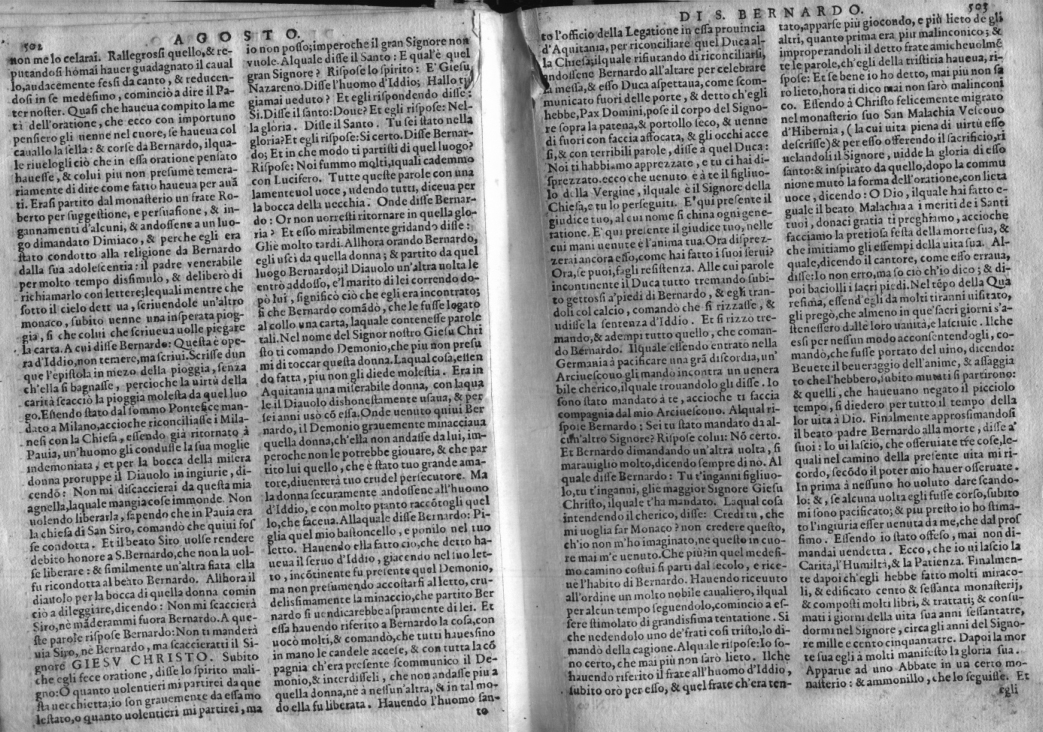 502
AGOSTO.
non me lo celarai. Rallegrossi quello, & re-
putandosi homai hauer guadagnato il caual
lo, audacemente fessi da canto, & reducen-
dosi in se medesimo, cominciò a dire il Pa-
ter noster. Quasi che haueua compito la me
tà dell'oratione, che ecco con importuno
pensiero gli uenne nel cuore, se haueua col
cauallo la sella: & corse da Bernardo, ilqua-
le riuelogli ciò che in essa oratione pensato
hauesse, & colui piu non presume temera-
riamente di dire come fatto haueua per auã
ti. Erasi partito dal monasterio un frate Ro-
berto per suggestione, e persuasione, & in-
gannamenti d'alcuni, & andossene a un luo-
go dimandato Dimiaco, & perche egli era
stato condotto alla religione da Bernardo
dalla sua adolescentia: il padre venerabile
per molto tempo dissimulo, & deliberò di
richiamarlo con lettere; lequali mentre che
sotto il cielo dett ua, scriuendole un'altro
monaco, subito uenne una insperata piog-
gia, si che colui che scriueua uolle piegare
la carta. A cui disse Bernardo: Questa è ope-
ra d'Iddio, non temere, ma scriui. Scrisse dun
que l'epistola in mezo della pioggia, senza
ch'ella si bagnasse, percioche la uirtù della
carità scacciò la pioggia molesta da quel luo
go. Essendo stato dal sommo Pontefice man-
dato a Milano, accioche riconciliasse i Mila-
nesi con la Chiesa, essendo già ritornato à
Pauia, un'huomo gli condusse la sua moglie
indemoniata, et per la bocca della misera
donna proruppe il Diauolo in ingiurie, di-
cendo: Non mi discaccierai da questa mia
agnella, laquale mangia cose immonde. Non
uolendo liberarla, sapendo che in Pauia era
la chiesa di San Siro, comandò che quiui fos
se condotta. Et il beato Siro uolse rendere
debito honore a S. Bernardo, che non la uol-
se liberare: & similmente un'altra fiata ella
fu ricondotta al beato Bernardo. Allhora il
diauolo per la bocca di quella donna comin
ciò a dileggiare, dicendo: Non mi scaccierà
Siro, nè mãderammi fuora Bernardo. A que-
ste parole rispose Bernardo: Non ti manderà
uia Siro, nè Bernardo, ma scaccieratti il Si-
gnore GIESV CHRISTO. Subito
che egli fece oratione, disse lo spirito mali-
gno: O quanto uolentieri mi partirei da que
sta uecchietta; io son grauemente da essa mo
lestato, o quanto uolentieri mi partirei, ma
io non posso; imperoche il gran Signore non
vuole. Al quale disse il Santo: E qual'è quel
gran Signore? Rispose lo spirito: E' Giesu,
Nazareno. Disse l'huomo d'Iddio: Hallo tu
giamai ueduto? Et egli rispondendo disse:
Si. Disse il santo: Doue? Et egli rispose: Nel-
la gloria. Disse il Santo. Tu sei stato nella
gloria? Et egli rispose: Si certo. Disse Bernar-
do; Et in che modo ti partisti di quel luogo?
Rispose: Noi fummo molti, iquali cademmo
con Lucifero. Tutte queste parole con una
lamenteuol uoce, udendo tutti, diceua per
la bocca della uecchia. Onde disse Bernar-
do: Or non uorresti ritornare in quella glo-
ria? Et esso mirabilmente gridando disse:
Glie molto tardi. Allhora orando Bernardo,
egli uscì da quella donna; & partito da quel
luogo Bernardo; il Diauolo un'altra uolta le
entrò addosso, e'l marito di lei correndo do-
pò lui, significò ciò che gli era incontrato;
si che Bernardo comãdò, che le fusse legato
al collo una carta, laquale contenesse parole
tali. Nel nome del Signor nostro Giesu Chri
sto ti comando Demonio, che piu non presu
mi di toccar questa donna. Laqual cosa, essen
do fatta, piu non gli diede molestia. Era in
Aquitania una miserabile donna, con laqua
le il Diauolo dishonestamente usaua, & per
sei anni usò cõ essa. Onde uenuto quiui Ber
nardo, il Demonio grauemente minacciaua
quella donna, ch'ella non andasse da lui, im-
peroche non le potrebbe giouare, & che par
tito lui quello, che è stato tuo grande ama-
tore, diuenterà tuo crudel persecutore. Ma
la donna securamente andossene all'huomo
d'Iddio, e con molto pianto raccõtogli quel
lo, che faceua. Alla quale disse Bernardo: Pi-
glia quel mio bastoncello, e ponilo nel tuo
letto. Hauendo ella fatto ciò, che detto ha-
ueua il seruo d'Iddio, giacendo nel suo let-
to, incõtinente fu presente quel Demonio,
ma non presumendo accostarsi al letto, cru-
delissimamente la minacciò, che partito Ber
nardo si uendicarebbe aspramente di lei. Et
essa hauendo riferito a Bernardo la cosa, con
uocò molti, & comandò, che tutti hauessino
in mano le candele accese, & con tutta la cõ
pagnia ch'era presente scommunicò il De-
monio, & interdisseli, che non andasse piu a
quella donna, nè a nessun'altra, & in tal mo-
do ella fu liberata. Hauendo l'huomo san-
to
DI S. BERNARDO.
503
to l'officio della Legatione in essa prouincia
d'Aquitania, per riconciliare quel Duca al-
la Chiesa; ilquale rifiutando di riconciliarsi,
andossene Bernardo all'altare per celebrare
la messa, & esso Duca aspettaua, come scom-
municato fuori delle porte, & detto ch'egli
hebbe, Pax Domini, pose il corpo del Signo-
re sopra la patena, & portollo seco, & uenne
di fuori con faccia affocata, & gli occhi acce
si, & con terribili parole, disse à quel Duca:
Noi ti habbiamo apprezzato, e tu ci hai di-
sprezzato. ecco che uenuto è à te il figliuo-
lo della Vergine, ilquale è il Signore della
Chiesa, e tu lo perseguiti. E' qui presente il
giudice tuo, al cui nome si china ogni gene-
ratione. E' qui presente il giudice tuo, nelle
cui mani uenute è l'anima tua. Ora disprez-
zerai ancora esso, come hai fatto i suoi serui?
Ora, se puoi, fagli resistenza. Alle cui parole
incontinente il Duca tutto tremando subi-
to gettossi a' piedi di Bernardo, & egli tran-
doli col calcio, comandò che si rizzasse, &
udisse la sentenza d'Iddio. Et si rizzo tre-
mando, & adempì tutto quello, che coman-
do Bernardo. Ilquale essendo entrato nella
Germania à pacificare una grã discordia, un'
Arciuescouo gli mandò incontra un uenera
bile chierico, ilquale trouandolo gli disse. Io
sono stato mandato à te, accioche ti faccia
compagnia dal mio Arciuescouo. Alqual ri-
spose Bernardo: Sei tu stato mandato da al-
cun'altro Signore? Rispose colui: Nò certo.
Et Bernardo dimandando un'altra uolta, si
marauigliò molto, dicendo sempre di nò. Al
quale disse Bernardo: Tu t'inganni figliuo-
lo, tu t'inganni, gliè maggior Signore Giesu
Christo, ilquale t'ha mandato. Laqual cosa
intendendo il cherico, disse: Credi tu, che
mi uoglia far Monaco? non credere questo,
ch'io non m'ho imaginato, ne questo in cuo-
re mai m'è uenuto. Che piu? in quel medesi-
mo camino costui si partì dal secolo, e rice-
uè l'habito di Bernardo. Hauendo riceuuto
all'ordine un molto nobile caualiero, ilqual
per alcun tempo seguendolo, comincio a es-
sere stimolato di grandissima tentatione. Si
che uedendolo uno de' frati così tristo, lo di-
mandò della cagione. Alquale rispose: Io so-
no certo, che mai piu non sarò lieto. Ilche
hauendo riferito il frate all'huomo d'Iddio,
subito orò per esso, & quel frate ch'era ten-
tato, apparse più giocondo, e più lieto de gli
altri, quanto prima era piu malinconico; &
improperandoli il detto frate amicheuolmẽ
te le parole, ch'egli della tristitia haueua, ri-
spose: Et se bene io ho detto, mai piu non sa
rò lieto, hora ti dico mai non sarò malinconi
co. Essendo à Christo felicemente migrato
nel monasterio suo San Malachia Vescouo
d'Hibernia, (la cui uita piena di uirtù esso
descrisse) & per esso offerendo il sacrificio, ri
uelandoli il Signore, uidde la gloria di esso
santo: & inspirato da quello, dopo la commu
nione mutò la forma dell'oratione, con lieta
uoce, dicendo: O Dio, ilquale hai fatto e-
guale il beato Malachia a i meriti de i Santi
tuoi, donaci gratia ti preghiamo, accioche
facciamo la pretiosa festa della morte sua, &
che imitiamo gli essempi della uita sua. Al-
quale, dicendo il cantore, come esso erraua,
disse: Io non erro, ma so ciò ch'io dico; & di-
poi baciolli i sacri piedi. Nel tẽpo della Qua
resima, essend'egli da molti tiranni uisitato,
gli pregò, che almeno in que' sacri giorni s'a-
stenessero dalle loro uanità, e lasciuie. Ilche
essi per nessun modo acconsentendogli, co-
mandò, che fusse portato del uino, dicendo:
Beuete il beueraggio dell'anime, & assaggia
to che l'hebbero, subito mutati si partirono:
& quelli, che haueuano negato il picciolo
tempo, si diedero per tutto il tempo della
lor uita à Dio. Finalmente approssimandosi
il beato padre Bernardo alla morte, disse a'
suoi: Io ui lascio, che osseruiate tre cose, le-
quali nel camino della presente uita mi ri-
cordo, secõdo il poter mio hauer osseruate.
In prima à nessuno ho uoluto dare scanda-
lo: &, se alcuna uolta egli fusse corso, subito
mi sono pacificato; & piu presto io ho stima-
to l'ingiuria esser uenuta da me, che dal pros
simo. Essendo io stato offeso, mai non di-
mandai uendetta. Ecco, che io ui lascio la
Carità, l'Humiltà, & la Patienza. Finalmen-
te dapoi ch'egli hebbe fatto molti miraco-
li, & edificato cento & sessanta monasterij,
& composti molti libri, & trattati; & consu-
mati i giorni della uita sua anni sessantatre,
dormì nel Signore, circa gli anni del Signo-
re mille e cento cinquantatre. Dapoi la mor
te sua egli à molti manifesto la gloria sua.
Apparue ad uno Abbate in un certo mo-
nasterio: & ammonillo, che lo seguisse. Et
egli